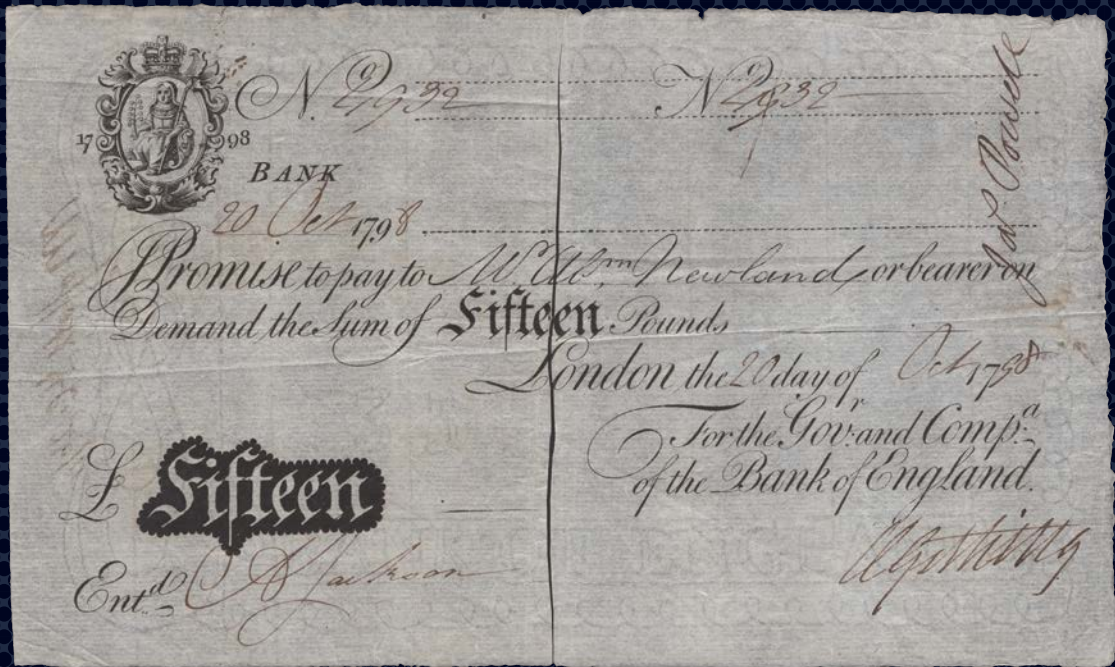 Nº 2932 Nº 2932
17 98
BANK
20 Oct 1798
I Promise to pay to Mr Abm. Newland or bearer on
Demand the Sum of Fifteen Pounds
London the 20 day of Oct 1798
For the Govr: and Compa:
of the Bank of England.
£ Fifteen
Entd Jackson
Powell